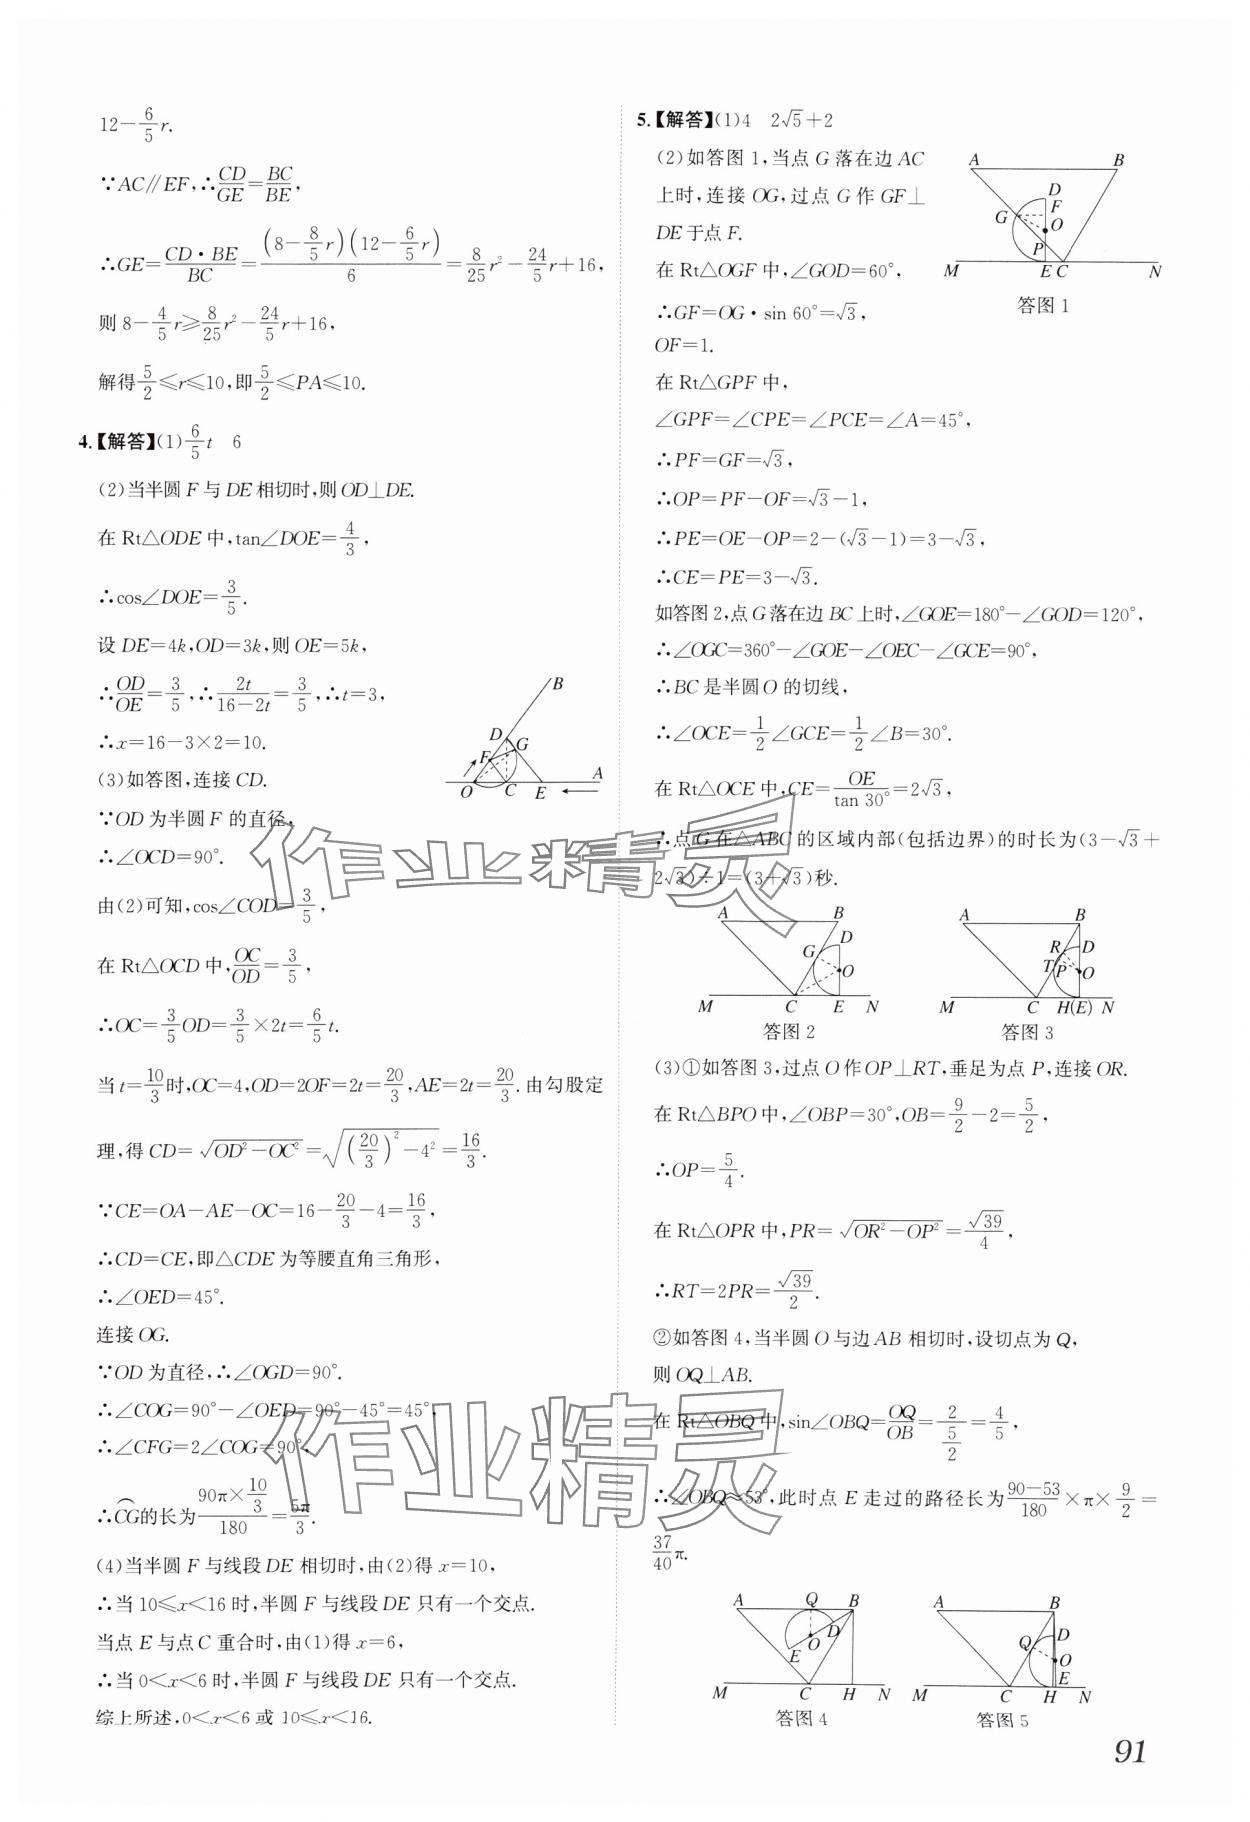 12－6/5r.
∵AC∥EF,∴CD/GE＝BC/BE,
∴GE＝CD·BE/BC＝(8－8/5r)(12－6/5r)/6＝8/25r²－24/5r＋16,
则8－4/5r≥8/25r²－24/5r＋16,
解得5/2≤r≤10,即5/2≤PA≤10.
4.【解答】(1)6/5t　6
(2)当半圆F与DE相切时,则OD⊥DE.
在Rt△ODE中,tan∠DOE＝4/3,
∴cos∠DOE＝3/5.
设DE＝4k,OD＝3k,则OE＝5k,
∴OD/OE＝3/5,∴2t/(16－2t)＝3/5,∴t＝3,
∴x＝16－3×2＝10.
(3)如答图,连接CD.
∵OD为半圆F的直径,
∴∠OCD＝90°.
由(2)可知,cos∠COD＝3/5,
在Rt△OCD中,OC/OD＝3/5,
∴OC＝3/5OD＝3/5×2t＝6/5t.
当t＝10/3时,OC＝4,OD＝2OF＝2t＝20/3,AE＝2t＝20/3.由勾股定
理,得CD＝√(OD²－OC²)＝√((20/3)²－4²)＝16/3.
∵CE＝OA－AE－OC＝16－20/3－4＝16/3,
∴CD＝CE,即△CDE为等腰直角三角形,
∴∠OED＝45°.
连接OG.
∵OD为直径,∴∠OGD＝90°.
∴∠COG＝90°－∠OED＝90°－45°＝45°,
∴∠CFG＝2∠COG＝90°,
∴⌒CG的长为(90π×10/3)/180＝5π/3.
(4)当半圆F与线段DE相切时,由(2)得x＝10,
∴当10≤x＜16时,半圆F与线段DE只有一个交点.
当点E与点C重合时,由(1)得x＝6,
∴当0＜x＜6时,半圆F与线段DE只有一个交点.
综上所述,0＜x＜6或10≤x＜16.
B
D
G
F
A
O
C
E
5.【解答】(1)4　2√5＋2
(2)如答图1,当点G落在边AC
上时,连接OG,过点G作GF⊥
DE于点F.
在Rt△OGF中,∠GOD＝60°,
∴GF＝OG·sin 60°＝√3,
OF＝1.
在Rt△GPF中,
∠GPF＝∠CPE＝∠PCE＝∠A＝45°,
∴PF＝GF＝√3,
∴OP＝PF－OF＝√3－1,
∴PE＝OE－OP＝2－(√3－1)＝3－√3,
∴CE＝PE＝3－√3.
A B
D
G F
O
P
M E C N
答图1
如答图2,点G落在边BC上时,∠GOE＝180°－∠GOD＝120°,
∴∠OGC＝360°－∠GOE－∠OEC－∠GCE＝90°,
∴BC是半圆O的切线,
∴∠OCE＝1/2∠GCE＝1/2∠B＝30°.
在Rt△OCE中,CE＝OE/tan 30°＝2√3,
∴点G在△ABC的区域内部(包括边界)的时长为(3－√3＋
2√3)÷1＝(3＋√3)秒.
A B
G D
O
M C E N
答图2
A B
R D
T P O
M C H(E) N
答图3
(3)①如答图3,过点O作OP⊥RT,垂足为点P,连接OR.
在Rt△BPO中,∠OBP＝30°,OB＝9/2－2＝5/2,
∴OP＝5/4.
在Rt△OPR中,PR＝√(OR²－OP²)＝√39/4,
∴RT＝2PR＝√39/2.
②如答图4,当半圆O与边AB相切时,设切点为Q,
则OQ⊥AB.
在Rt△OBQ中,sin∠OBQ＝OQ/OB＝2/(5/2)＝4/5,
∴∠OBQ≈53°,此时点E走过的路径长为(90－53)/180×π×9/2＝
37/40π.
A Q B
D
O
E
M C H N
答图4
A B
Q D
O
E
M C H N
答图5
91
作业精灵
作业精灵